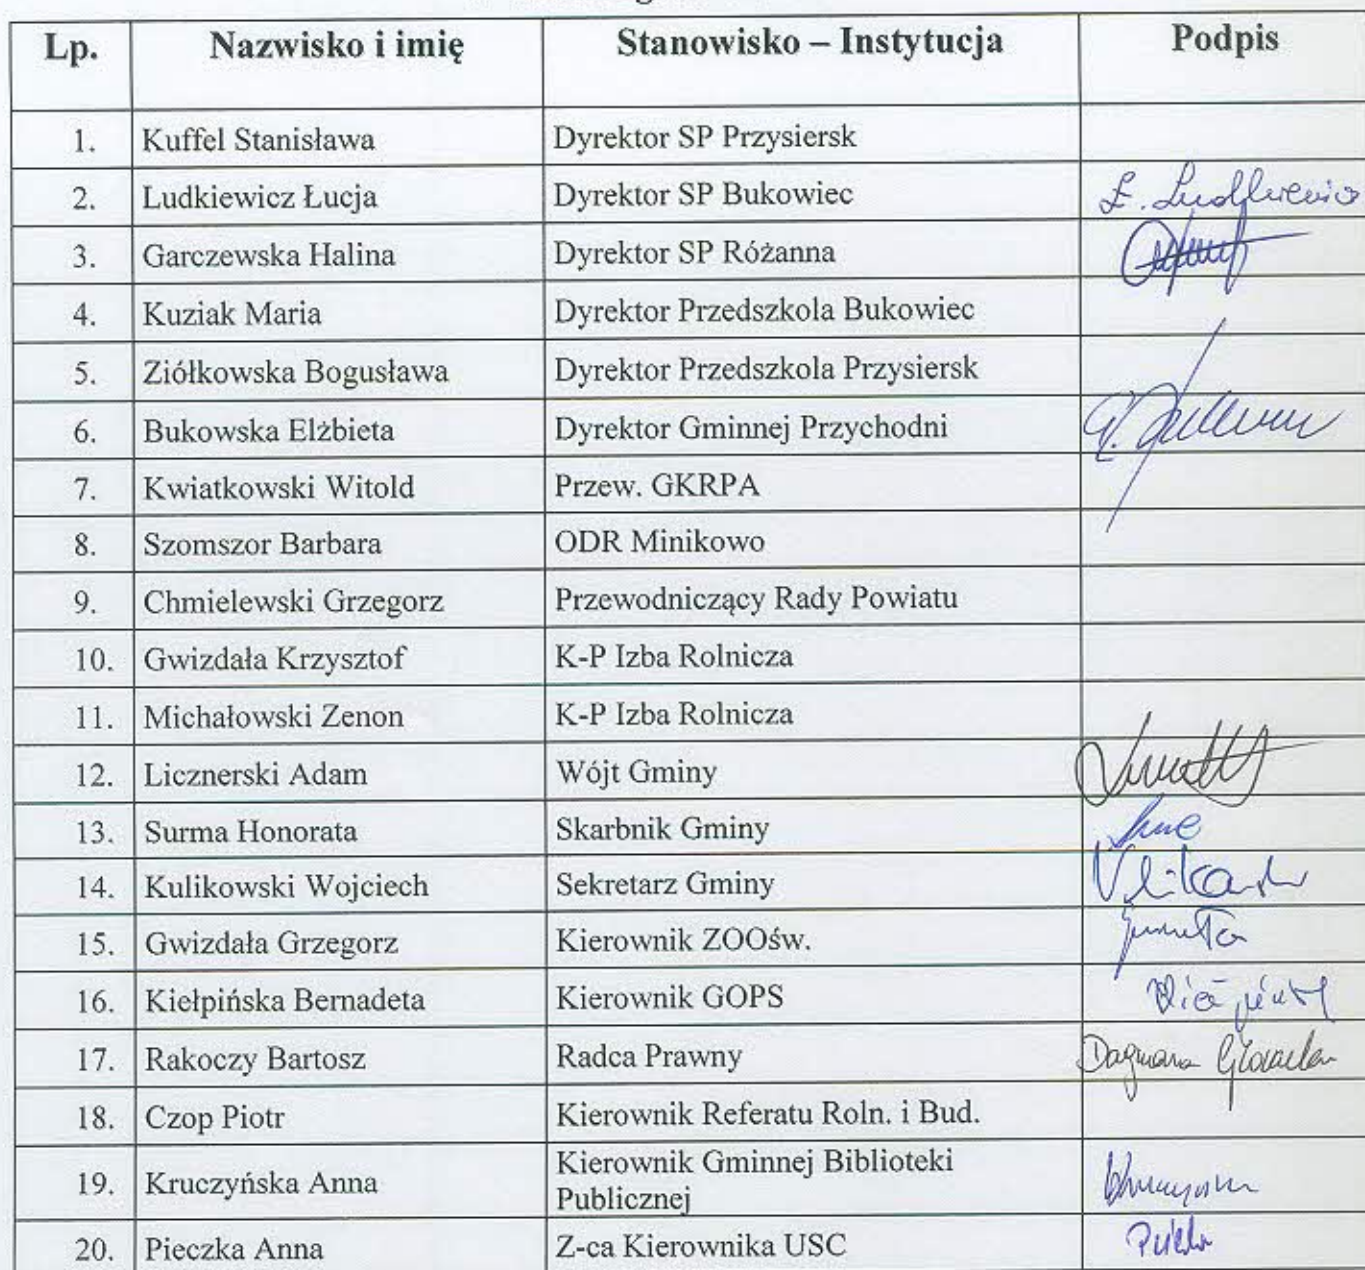 Lp. Nazwisko i imię Stanowisko – Instytucja Podpis
1. Kuffel Stanisława Dyrektor SP Przysiersk
2. Ludkiewicz Łucja Dyrektor SP Bukowiec Ł. Ludkiewicz
3. Garczewska Halina Dyrektor SP Różanna
4. Kuziak Maria Dyrektor Przedszkola Bukowiec
5. Ziółkowska Bogusława Dyrektor Przedszkola Przysiersk
6. Bukowska Elżbieta Dyrektor Gminnej Przychodni
7. Kwiatkowski Witold Przew. GKRPA
8. Szomszor Barbara ODR Minikowo
9. Chmielewski Grzegorz Przewodniczący Rady Powiatu
10. Gwizdała Krzysztof K-P Izba Rolnicza
11. Michałowski Zenon K-P Izba Rolnicza
12. Licznerski Adam Wójt Gminy
13. Surma Honorata Skarbnik Gminy
14. Kulikowski Wojciech Sekretarz Gminy
15. Gwizdała Grzegorz Kierownik ZOOśw.
16. Kiełpińska Bernadeta Kierownik GOPS
17. Rakoczy Bartosz Radca Prawny Dagmara
18. Czop Piotr Kierownik Referatu Roln. i Bud.
19. Kruczyńska Anna Kierownik Gminnej Biblioteki
Publicznej
20. Pieczka Anna Z-ca Kierownika USC